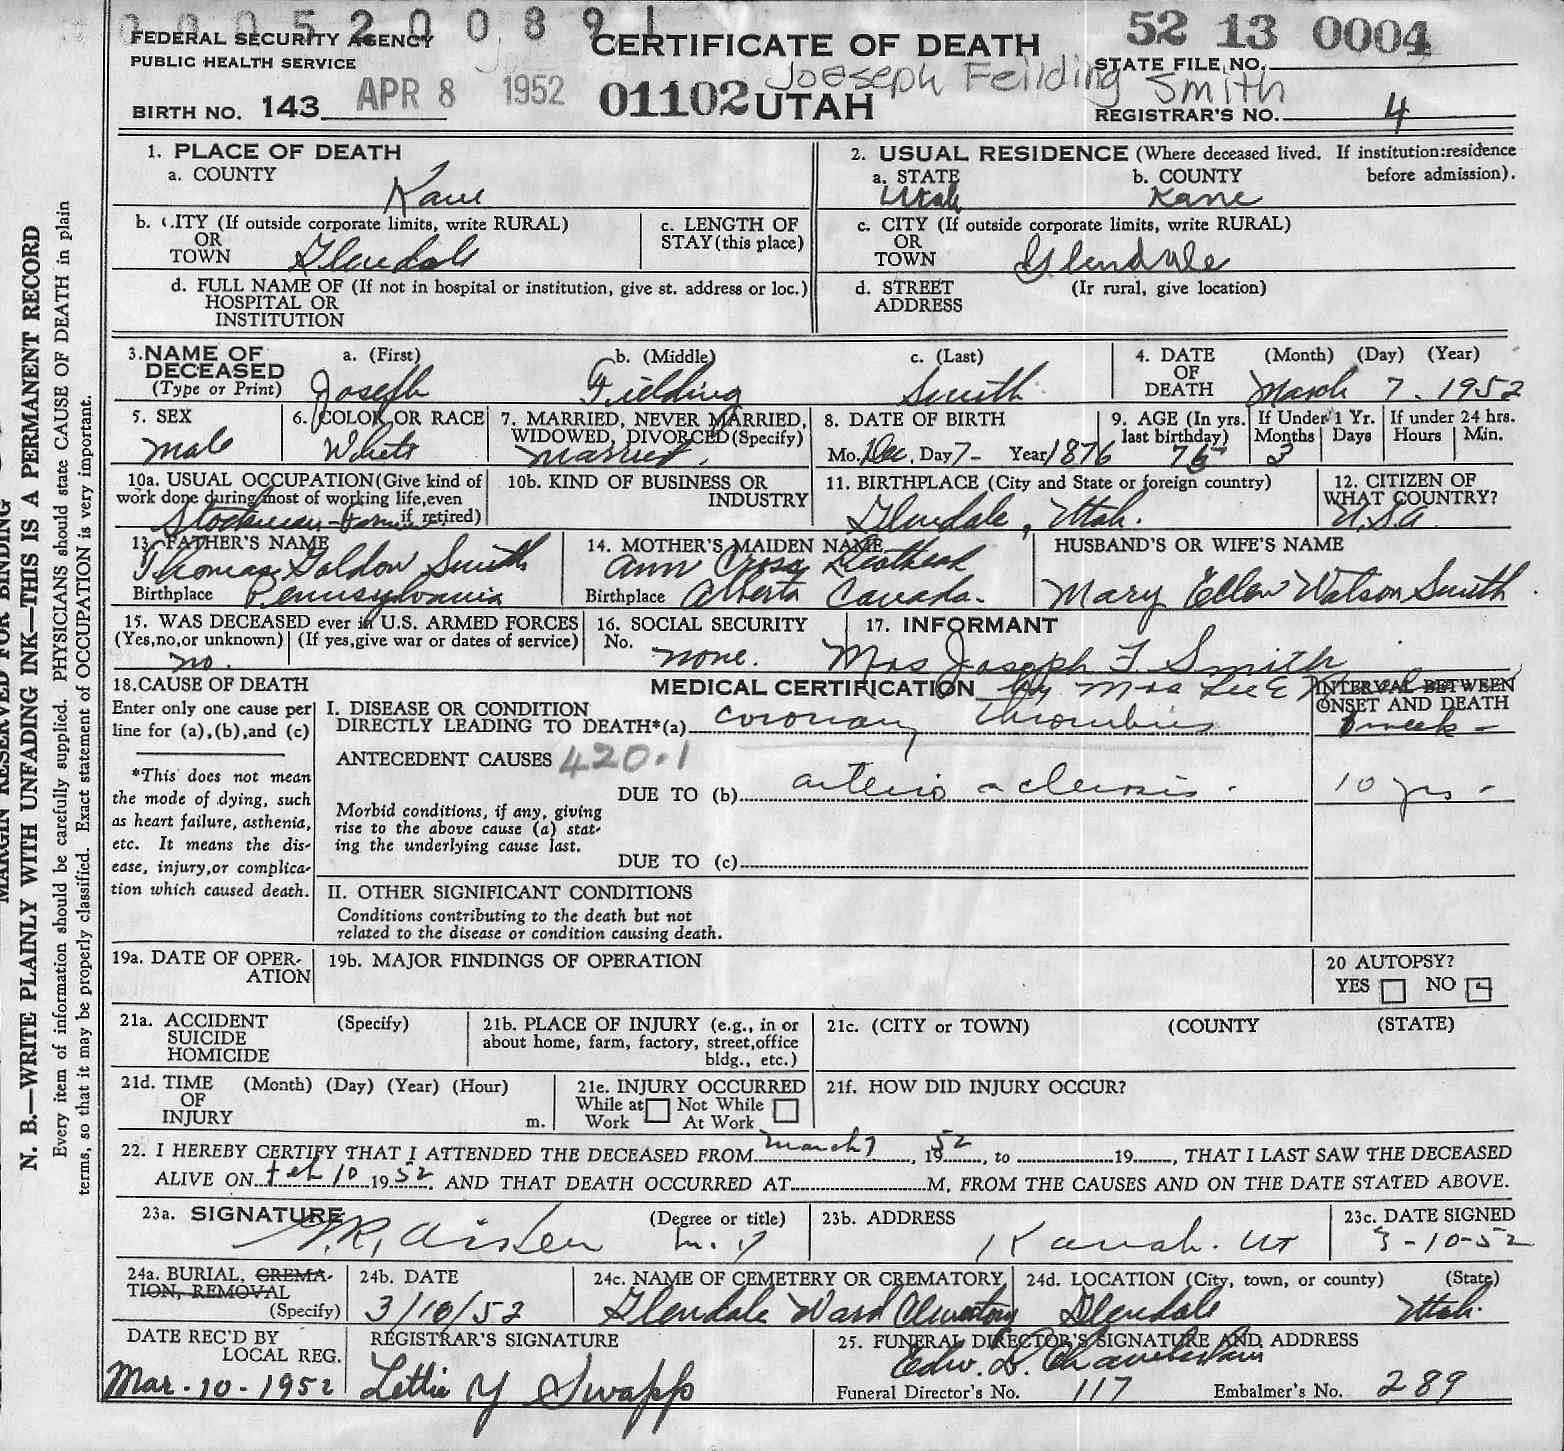 0 0 0 5 2 0 0 8 9 1
FEDERAL SECURITY AGENCY
PUBLIC HEALTH SERVICE
BIRTH NO. 143
APR 8 1952
CERTIFICATE OF DEATH
Joeseph Feilding Smith
01102 UTAH
52 13 0004
STATE FILE NO.
REGISTRAR'S NO. 4
MARGIN RESERVED FOR BINDING
N. B.—WRITE PLAINLY WITH UNFADING INK—THIS IS A PERMANENT RECORD
Every item of information should be carefully supplied. PHYSICIANS should state CAUSE OF DEATH in plain
terms, so that it may be properly classified. Exact statement of OCCUPATION is very important.
1. PLACE OF DEATH
a. COUNTY
Kane
2. USUAL RESIDENCE (Where deceased lived. If institution:residence
before admission).
a. STATE
Utah
b. COUNTY
Kane
b. CITY (If outside corporate limits, write RURAL)
OR
TOWN
Glendale
c. LENGTH OF
STAY (this place)
c. CITY (If outside corporate limits, write RURAL)
OR
TOWN
Glendale
d. FULL NAME OF (If not in hospital or institution, give st. address or loc.)
HOSPITAL OR
INSTITUTION
d. STREET
ADDRESS
(Ir rural, give location)
3. NAME OF
DECEASED
(Type or Print)
a. (First)
Joseph
b. (Middle)
Fielding
c. (Last)
Smith
4. DATE
OF
DEATH
(Month) (Day) (Year)
March 7. 1952
5. SEX
male
6. COLOR OR RACE
White
7. MARRIED, NEVER MARRIED,
WIDOWED, DIVORCED (Specify)
Married.
8. DATE OF BIRTH
Mo. Dec. Day 7- Year 1876
9. AGE (In yrs.
last birthday)
75
If Under 1 Yr.
Months Days
3
If under 24 hrs.
Hours Min.
10a. USUAL OCCUPATION (Give kind of
work done during most of working life, even
if retired)
Stockman-Farmer
10b. KIND OF BUSINESS OR
INDUSTRY
11. BIRTHPLACE (City and State or foreign country)
Glendale, Utah.
12. CITIZEN OF
WHAT COUNTRY?
U.S.A.
13. FATHER'S NAME
Thomas Goldon Smith
Birthplace Pennsylvania
14. MOTHER'S MAIDEN NAME
Ann
Birthplace Alberta Canada.
HUSBAND'S OR WIFE'S NAME
Mary Ellen Watson Smith
15. WAS DECEASED ever in U.S. ARMED FORCES
(Yes, no, or unknown) (If yes, give war or dates of service)
no.
16. SOCIAL SECURITY
No.
none.
17. INFORMANT
Mrs Joseph F. Smith
by Mrs Lee E
18. CAUSE OF DEATH
Enter only one cause per
line for (a), (b), and (c)
*This does not mean
the mode of dying, such
as heart failure, asthenia,
etc. It means the dis-
ease, injury, or complica-
tion which caused death.
MEDICAL CERTIFICATION
I. DISEASE OR CONDITION
DIRECTLY LEADING TO DEATH*(a) coronary thrombus
INTERVAL BETWEEN
ONSET AND DEATH
1 week -
ANTECEDENT CAUSES 420.1
DUE TO (b) arterio sclerosis.
10 yrs -
Morbid conditions, if any, giving
rise to the above cause (a) stat-
ing the underlying cause last.
DUE TO (c)
II. OTHER SIGNIFICANT CONDITIONS
Conditions contributing to the death but not
related to the disease or condition causing death.
19a. DATE OF OPER-
ATION
19b. MAJOR FINDINGS OF OPERATION
20 AUTOPSY?
YES NO
21a. ACCIDENT
SUICIDE
HOMICIDE
(Specify)
21b. PLACE OF INJURY (e.g., in or
about home, farm, factory, street, office
bldg., etc.)
21c. (CITY or TOWN) (COUNTY (STATE)
21d. TIME
OF
INJURY
(Month) (Day) (Year) (Hour)
m.
21e. INJURY OCCURRED
While at Work
Not While At Work
21f. HOW DID INJURY OCCUR?
22. I HEREBY CERTIFY THAT I ATTENDED THE DECEASED FROM March 7, 1952, to 19, THAT I LAST SAW THE DECEASED
ALIVE ON Feb 10 1952. AND THAT DEATH OCCURRED AT M, FROM THE CAUSES AND ON THE DATE STATED ABOVE.
23a. SIGNATURE
G.R. Aiken
(Degree or title)
M.D
23b. ADDRESS
Kanab. Ut
23c. DATE SIGNED
3-10-52
24a. BURIAL, CREMA-
TION, REMOVAL
(Specify)
24b. DATE
3/10/52
24c. NAME OF CEMETERY OR CREMATORY
Glendale Ward Cemetery
24d. LOCATION (City, town, or county) (State)
Glendale Utah.
DATE REC'D BY
LOCAL REG.
Mar-10-1952
REGISTRAR'S SIGNATURE
Lettie Y Swapp
25. FUNERAL DIRECTOR'S SIGNATURE AND ADDRESS
Edw. D. Chamberlain
Funeral Director's No. 117 Embalmer's No. 289